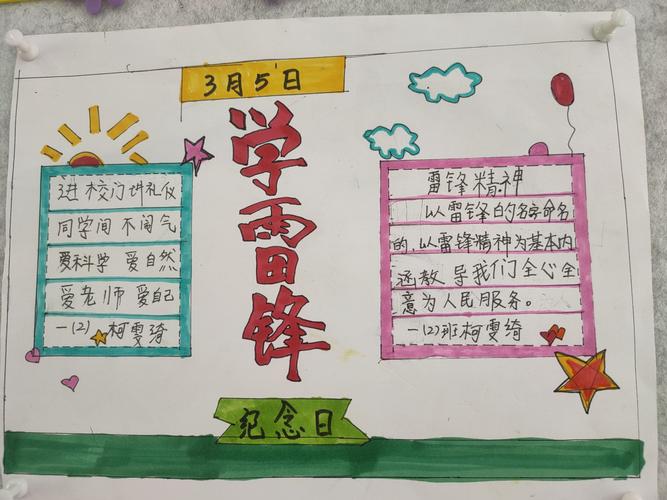 3月5日
学雷锋
3进校门讲礼仪
同学间 不闹气
爱科学 爱自然
爱老师 爱自己
一(2) 柯雯琦
雷锋精神
以雷锋的名字命名
的,以雷锋精神为基本内
涵教导我们全心全
意为人民服务。
一(2)班柯雯绮
纪念日